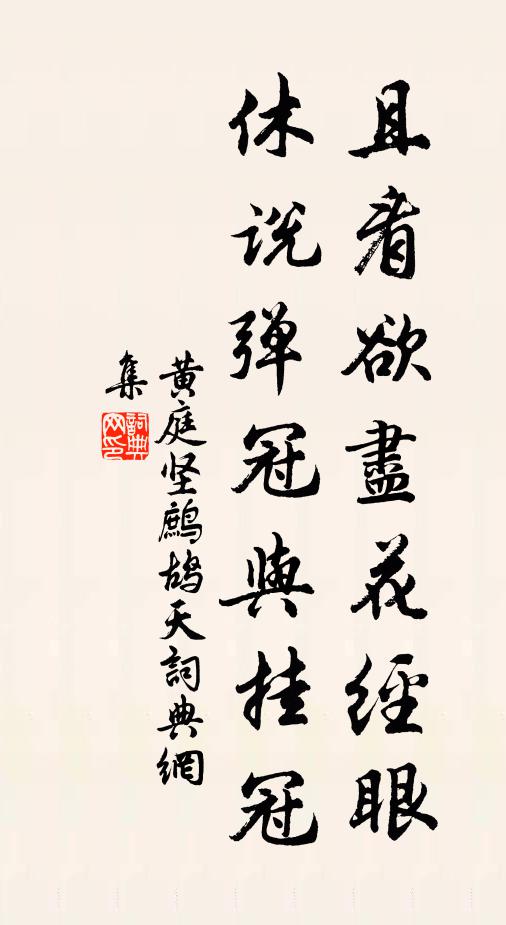 且看欲盡花經眼
休说弹冠與挂冠
黄庭坚鷓鴣天詞典網
集
詞典
网印